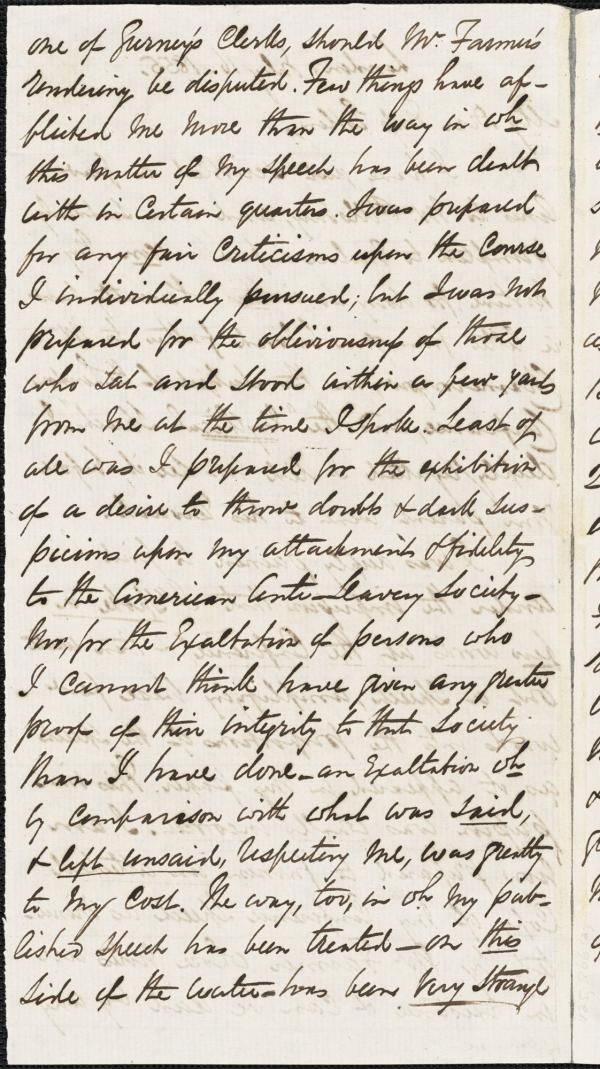 one of Gurney's Clerks, should Mr. Farmer's
rendering be disputed. Few things have af-
flicted me more than the way in wh
this matter of my speech has been dealt
with in certain quarters. I was prepared
for any fair criticisms upon the course
I individually pursued; but I was not
prepared for the obliviousness of those
who sat and stood within a few yards
from me at the time I spoke. Least of
all was I prepared for the exhibition
of a desire to throw doubts & dark sus-
picions upon my attachment & fidelity
to the American Anti-Slavery Society-
Nor, for the Exaltation of persons who
I cannot think have given any greater
proof of their integrity to that Society
than I have done - an Exaltation wh
by comparison with what was said,
& left unsaid, respecting me, was greatly
to my cost. The way, too, in wh my pub-
lished speech has been treated - on this
side of the water - has been very strange